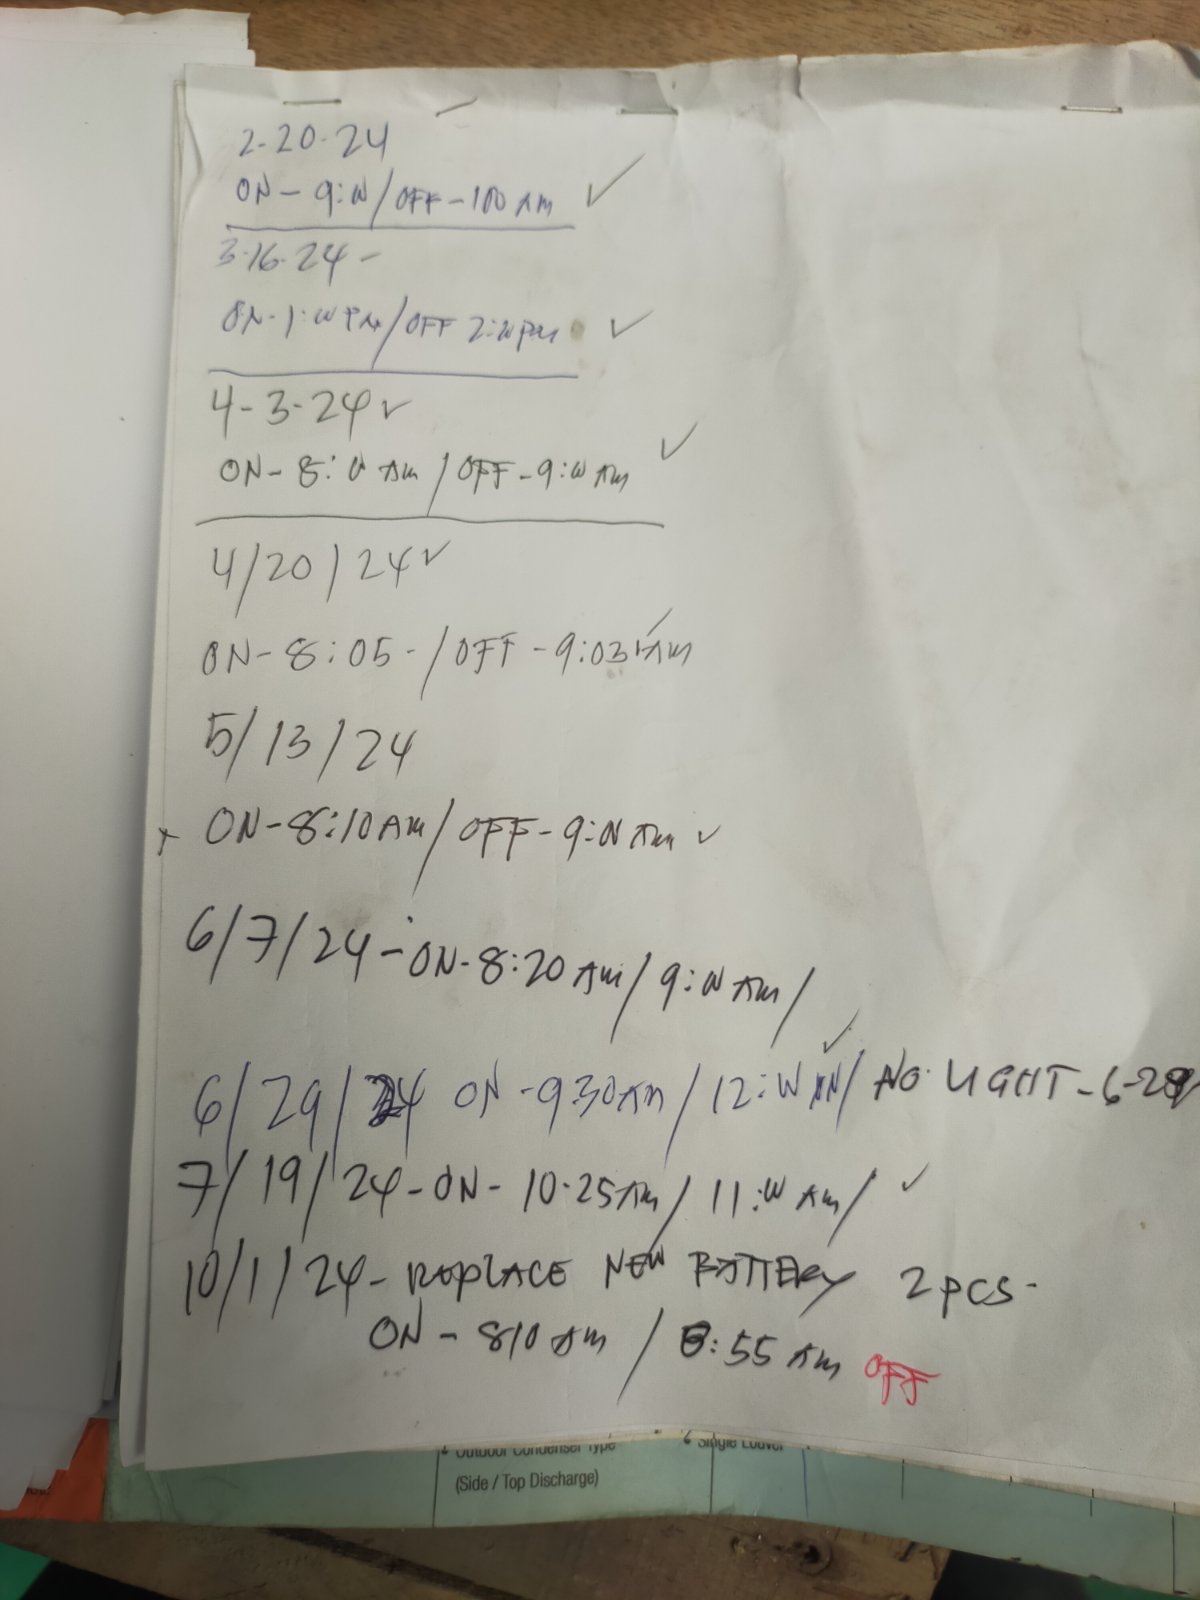 2-20-24
ON - 9:00 / OFF - 100 AM
3-16-24 -
ON - 1:00 PM / OFF 2:00 PM
4-3-24
ON - 8:00 AM / OFF - 9:00 AM
4/20/24
ON - 8:05 - / OFF - 9:03 AM
5/13/24
ON - 8:10 AM / OFF - 9:00 AM
6/7/24 - ON - 8:20 AM / 9:00 AM /
6/29/24 ON - 930 AM / 12:00 / NO LIGHT - 6-28
7/19/24 - ON - 10:25 AM / 11:00 AM /
10/1/24 - REPLACE NEW BATTERY 2 pcs -
ON - 810 AM / 8:55 AM OFF
Outdoor Condenser Type
Single Louver
(Side / Top Discharge)